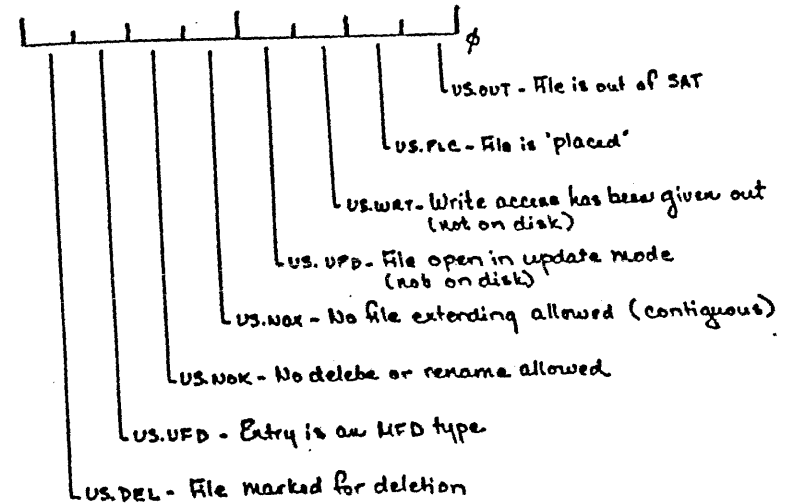 φ
US.OUT - File is out of SAT
US.PLC - File is "placed"
US.WRT - Write access has been given out
(not on disk)
US.UPD - File open in update mode
(not on disk)
US.NOX - No file extending allowed (contiguous)
US.NOK - No delete or rename allowed
US.UFD - Entry is an MFD type
US.DEL - File marked for deletion